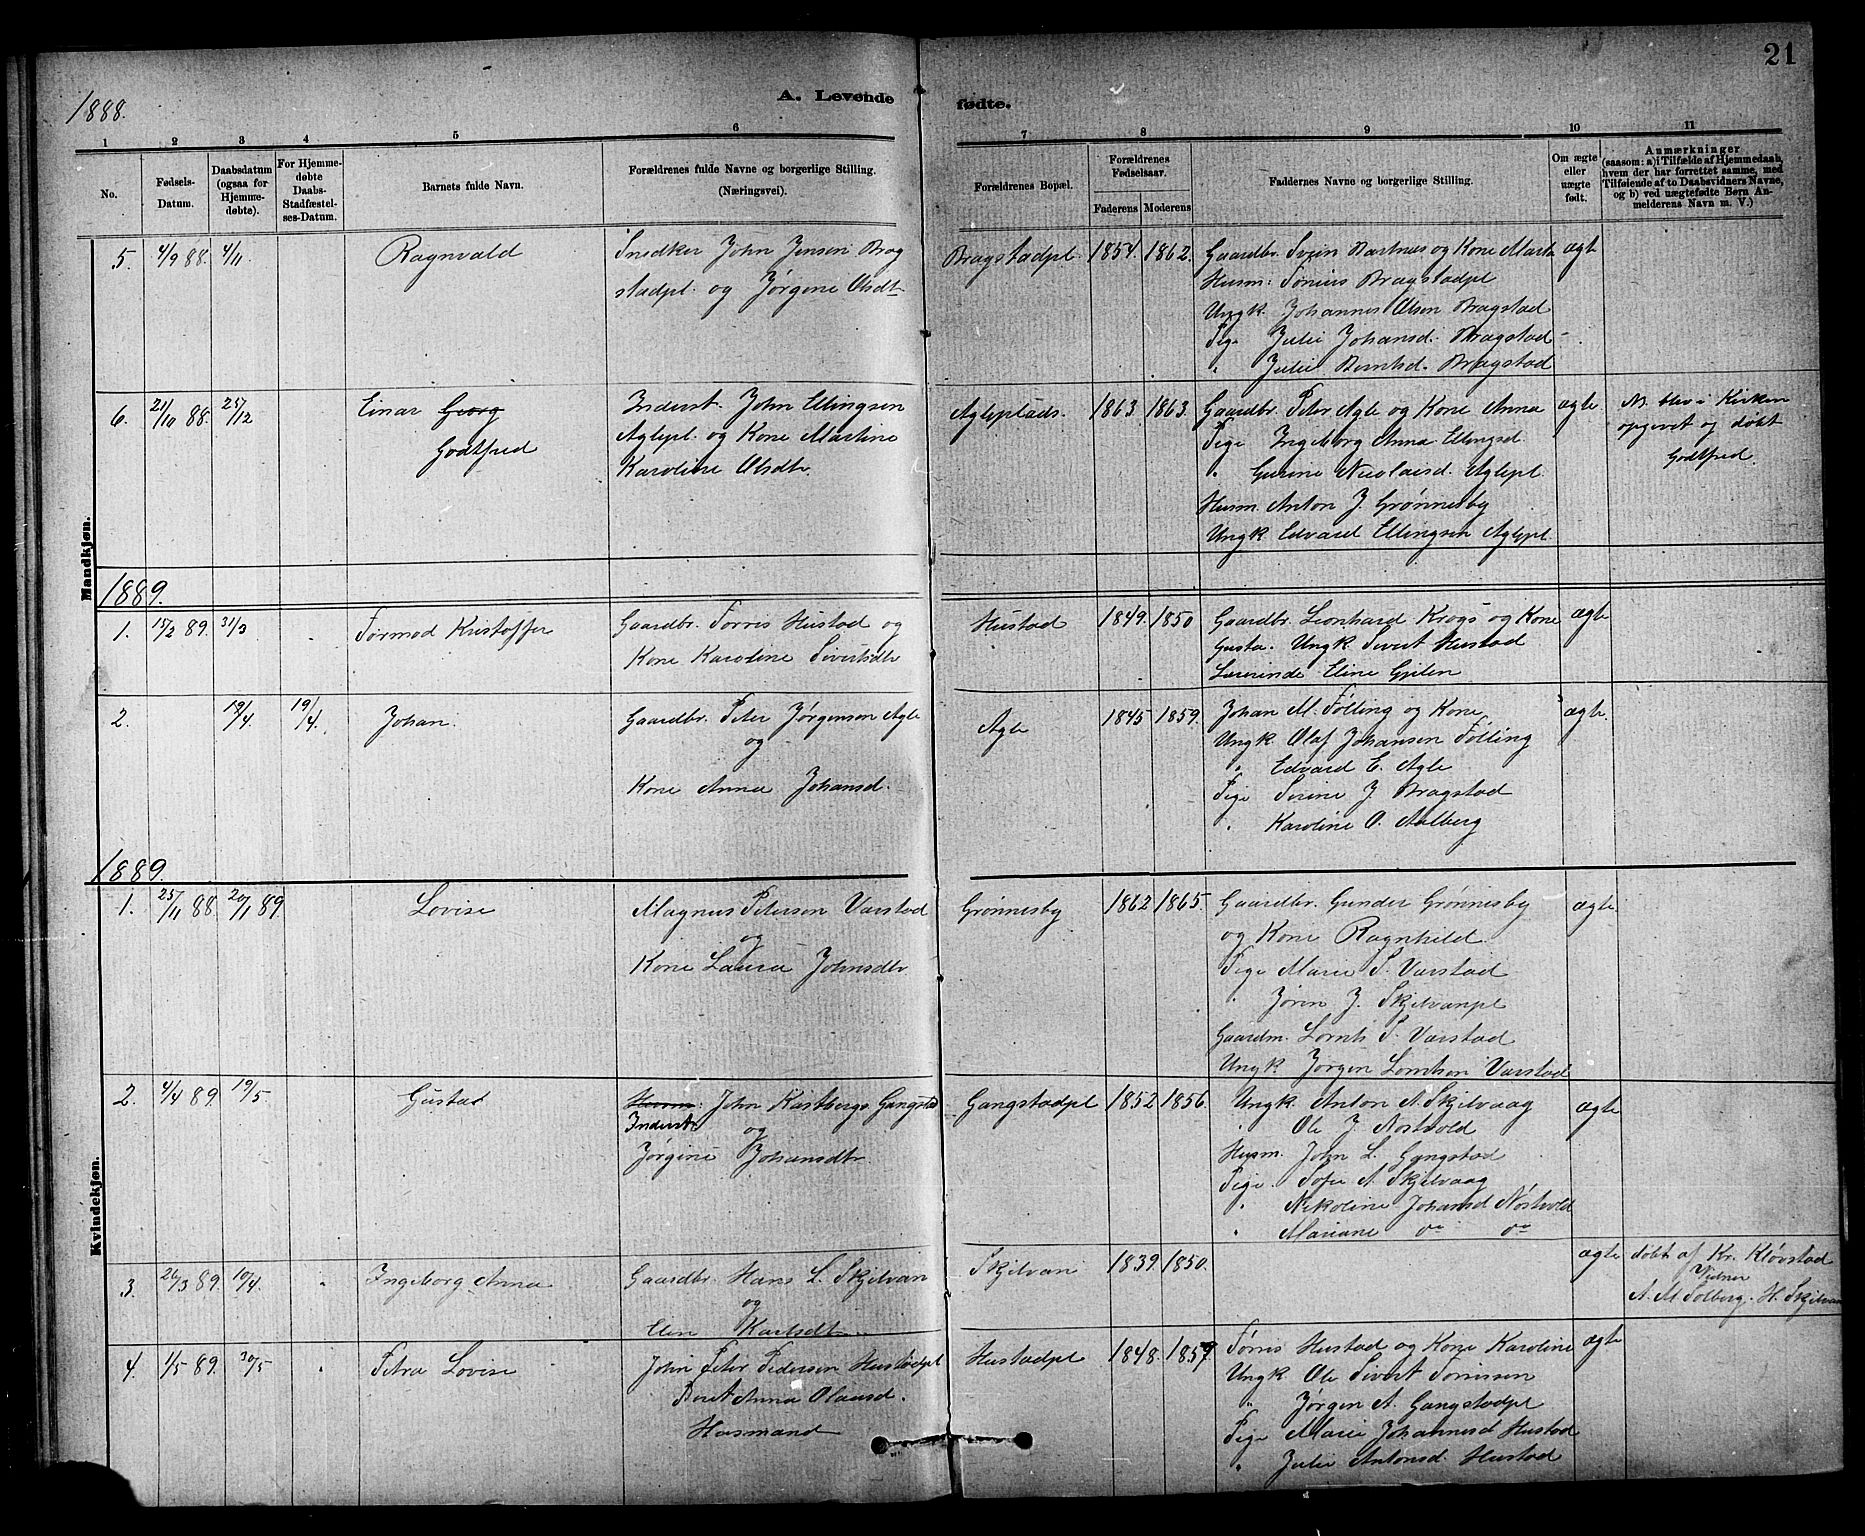 21
1888.
A. Levende fødte.
1 2 3 4 5 6 7 8 9 10 11
No.
Fødsels-Datum.
Daabsdatum (ogsaa for Hjemme-døbte).
For Hjemme-døbte Daabs-Stadfæstel-ses-Datum.
Barnets fulde Navn.
Forældrenes fulde Navne og borgerlige Stilling. (Næringsvei).
Forældrenes Bopæl.
Forældrenes Fødselsaar.
Faderens Moderens
Faddernes Navne og borgerlige Stilling.
Om ægte eller uægte født.
Anmærkninger
(saasom: a) i Tilfælde af Hjemmedaab,
hvem der har forrettet samme, med
Tilføiende af to Daabsvidners Navne,
og b) ved uægtefødte Børn An-
melderens Navn m. V.)
Mandkjøn.
5. 4/9 88. 4/11. Ragnvald
Snedker John Jensen Brag
stadpl. og Jørgine Olsdt
Bragstadpl. 1854. 1862.
Gaardbr. Svein Bartnes og Kone Marta
Husm: Tønius Bragstadpl
Ungk. Johannes Olsen Bragstad
Pige Julie Johansd. Bragstad
" Julie Berntsd. Bragstad
ægt
6. 21/10 88. 25/12 Einar Georg
Godtfred
Inderst. John Ellingsen
Aglepl. og Kone Martine
Karoline Olsdtr.
Agleplads. 1863. 1863.
Gaardbr. Peter Agle og Kone Anna
Pige Ingeborg Anna Ellingsd.
" Gurine Nicolaisd. Aglepl.
Husm. Anton J. Grønnesby
Ungk. Edvard Ellingsen Aglepl.
ægte
N. blev i Kirken
opgivet og døbt
Godtfred.
1889.
1. 15/2 89. 31/3 Tormod Kristoffer
Gaardbr. Torris Hustad og
Kone Karoline Sivertsdtr
Hustad 1849. 1850
Gaardbr. Leonhard Krogs og Kone
Gusta. Ungk Sivert Hustad
Lærerinde Eline Gjelen
ægte
2. 19/4. 19/4. Johan.
Gaardbr. Peter Jørgensen Agle
og
Kone Anna Johansd.
Agle 1845 1859.
Johan M. Følling og Kone
Ungk Olaf Johansen Følling
" Edvard E. Agle
Pige Serine J Bragstad
" Karoline O. Aalberg
ægte.
1889.
Kvindekjøn.
1. 25/11 88. 20/1 89. Lovise
Magnus Petersen Varstad
og
Kone Laura Johnsdtr
Grønnesby 1862 1865.
Gaardbr. Gunder Grønnesby
og Kone Ragnhild.
Pige Marie P. Varstad
" Jørin J. Skjelvanpl
Gaardm. Lornts P. Varstad
Ungk. Jørgen Lorntsen Varstad
ægte.
2. 4/4 89. 19/5 Gustad
Husm. John Kastbergs Gangstad
Inderst
og
Jørgine Johansdtr.
Gangstadpl 1852 1856.
Ungk. Anton A. Skjelvaag
" Ole J. Nostvold
Husm. John L. Gangstad
Pige. Sofie A. Skjelvaag
" Nikoline Johansd Nøstvold
" Mariane do do
ægte
3. 26/3 89. 10/4. " Ingeborg Anna
Gaardbr. Hans L. Skjelvan
og
Elen Karlsdtr.
Skjelvan 1839. 1850.
ægte
døbt af Kr. Kløvstad
Vidner
A. M Solberg. H. Skjelvan
4. 1/5 89. 30/5 " Petra Lovise
John Peter Pedersen Hustadpl
Beret Anna Olausd.
Husmand
Hustadpl 1848. 1857.
Tørris Hustad og Kone Karoline
Ungk Ole Sivert Torrissen
" Jørgen A. Gangstadpl
Pige Marie Johannesd Hustad
" Julie Antonsd. Hustad
ægte